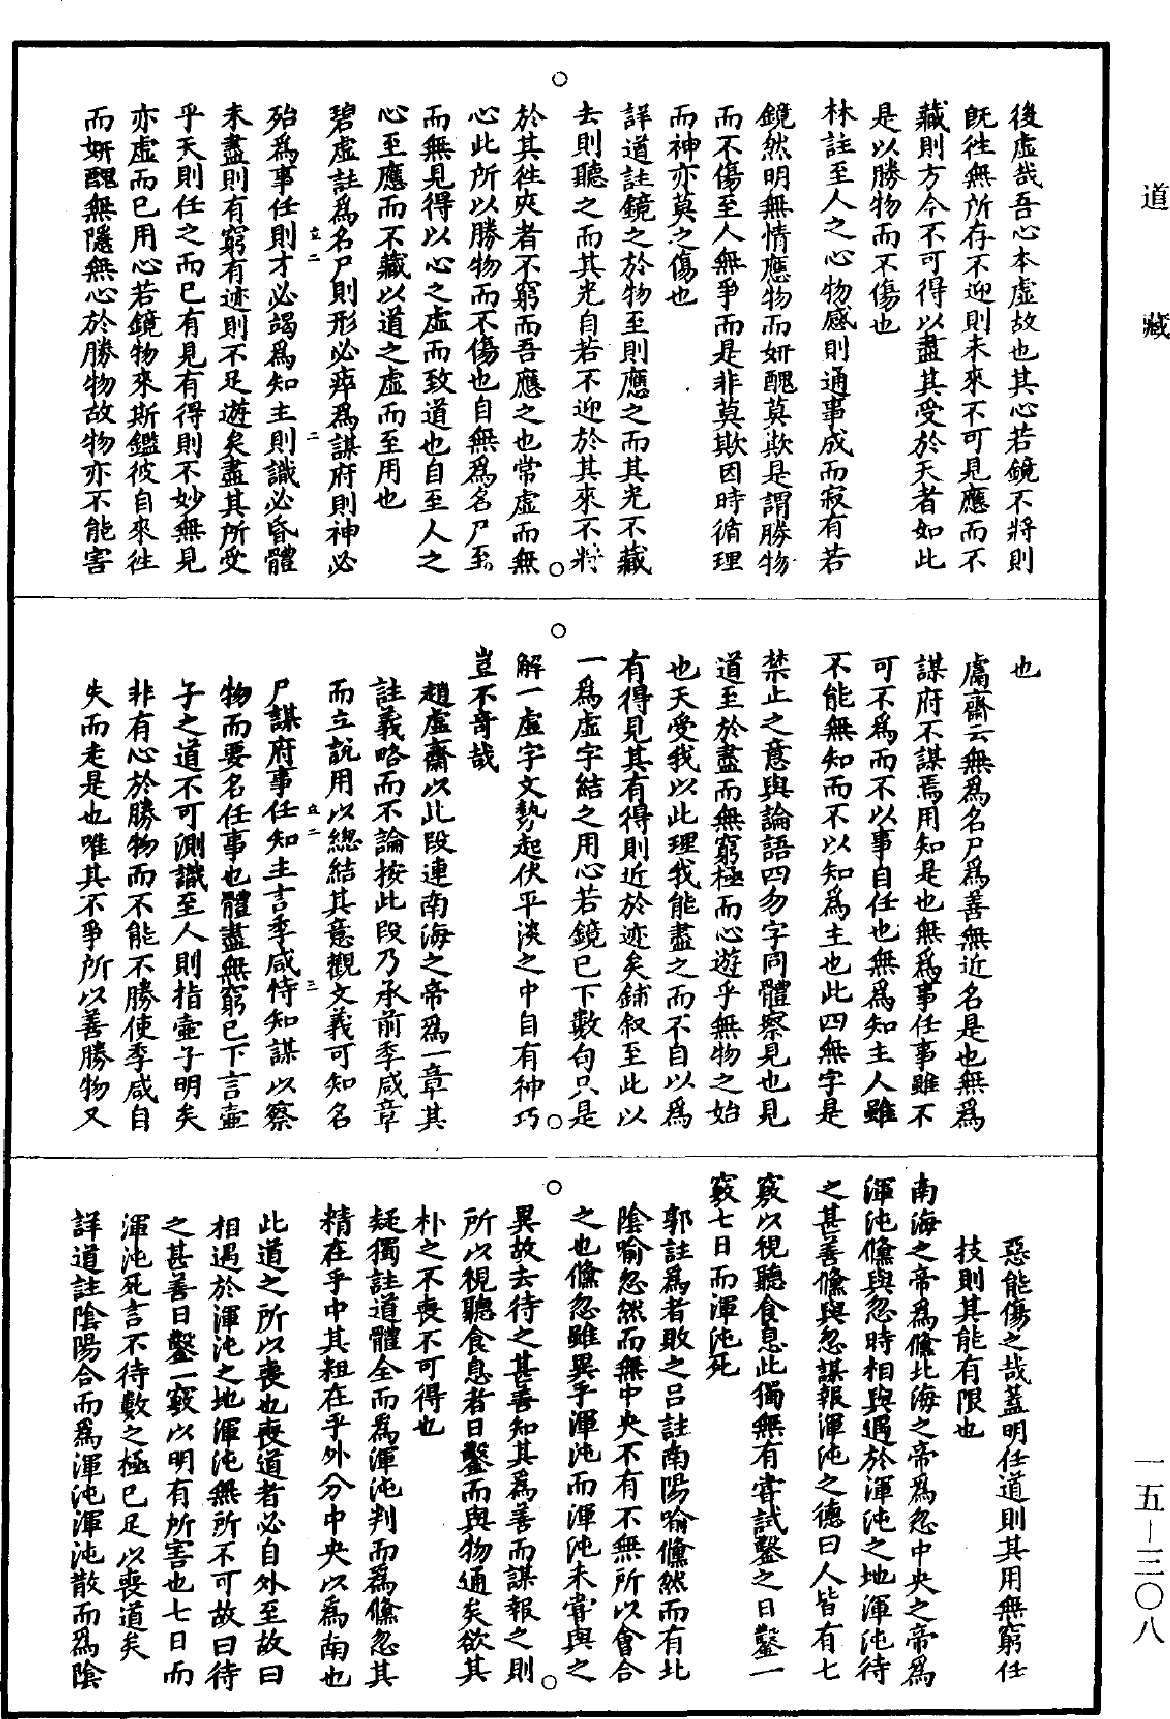 道藏
後虛哉吾心本虛故也其心若鏡不將則
旣徃無所存不迎則未來不可見應而不
藏則方今不可得以盡其受於天者如此
是以勝物而不傷也
林註至人之心物感則通事成而寂有若
鏡然明無情應物而妍醜莫欺是謂勝物
而不傷至人無爭而是非莫欺因時循理
而神亦莫之傷也
詳道註鏡之於物至則應之而其光不藏
去則聽之而其光自若不迎於其來不將
於其徃夾者不窮而吾應之也常虛而無
心此所以勝物而不傷也自無爲名尸至
而無見得以心之虛而致道也自至人之
心至應而不藏以道之虛而至用也
碧虛註爲名尸則形必瘁爲謀府則神必
殆爲事任則才必謁爲知主則識必昏體
未盡則有窮有迹則不足遊矣盡其所受
乎天則任之而已有見有得則不妙無見
亦虛而已用心若鏡物來斯鑑彼自來徃
而妍醜無隱無心於勝物故物亦不能害
立二
二
也
鬳齋云無爲名尸爲善無近名是也無爲
謀府不謀焉用知是也無爲事任事雖不
可不爲而不以事自任也無爲知主人雖
不能無知而不以知爲主也此四無字是
禁止之意與論語四勿字同體察見也見
道至於盡而無窮極而心遊乎無物之始
也天受我以此理我能盡之而不自以爲
有得見其有得則近於迹矣鋪叙至此以
一爲虛字結之用心若鏡已下數句只是
解一虛字文勢起伏平淡之中自有神巧
豈不奇哉
趙虛齋以此段連南海之帝爲一章其
註義略而不論按此段乃承前季咸章
而立說用以總結其意觀文義可知名
尸謀府事任知主言季咸恃知謀以察
物而要名任事也體盡無窮已下言壷
子之道不可測識至人則指壷子明矣
非有心於勝物而不能不勝使季咸自
失而走是也唯其不爭所以善勝物又
立二
三
惡能傷之哉蓋明任道則其用無窮任
技則其能有限也
南海之帝爲儵北海之帝爲忽中央之帝爲
渾沌儵與忽時相與遇於渾沌之地渾沌待
之甚善儵與忽謀報渾沌之德曰人皆有七
竅以視聽食息此獨無有嘗試鑿之日鑿一
竅七日而渾沌死
郭註爲者敗之吕註南陽喻儵然而有北
陰喻忽然而無中央不有不無所以會合
之也儵忽雖異乎渾沌而渾沌未嘗與之
異故去待之甚善知其爲善而謀報之則
所以視聽食息者日鑿而與物通矣欲其
朴之不喪不可得也
疑獨註道體全而爲渾沌判而爲儵忽其
精在乎中其粗在乎外分中央以爲南也
此道之所以喪也喪道者必自外至故曰
相遇於渾沌之地渾沌無所不可故曰待
之甚善日鑿一竅以明有所害也七日而
渾沌死言不待數之極已足以喪道矣
詳道註陰陽合而爲渾沌渾沌散而爲陰
一五—三〇八